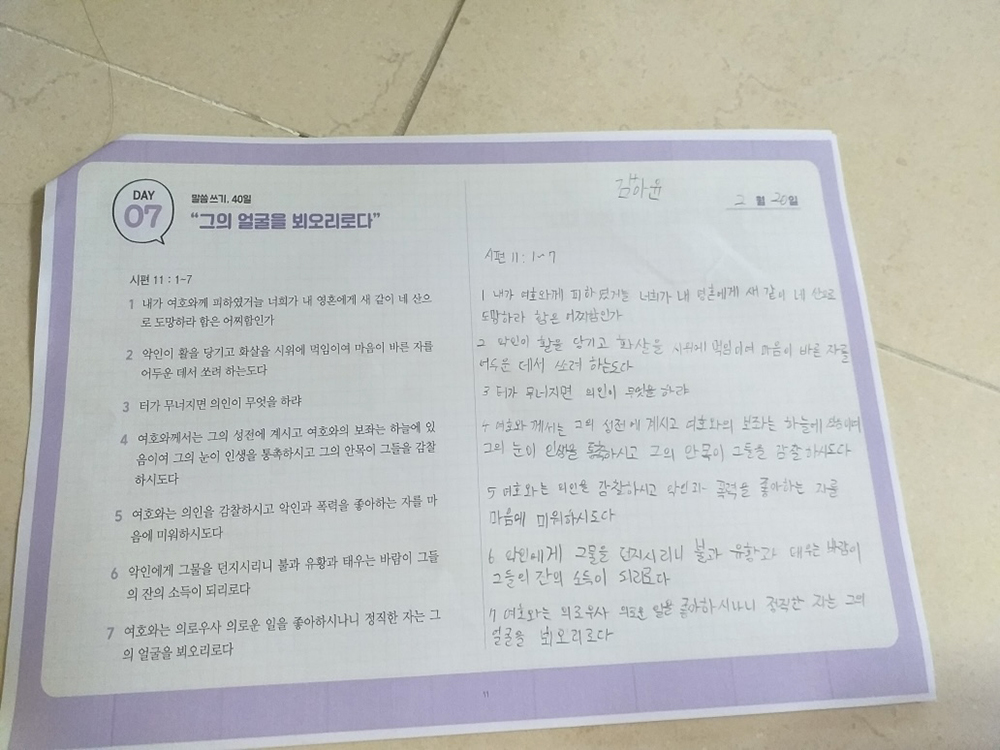 DAY
07
말씀 쓰기. 40일
“그의 얼굴을 뵈오리로다”
시편 11 : 1~7
1 내가 여호와께 피하였거늘 너희가 내 영혼에게 새 같이 네 산으
로 도망하라 함은 어찌함인가
2 악인이 활을 당기고 화살을 시위에 먹임이여 마음이 바른 자를
어두운 데서 쏘려 하는도다
3 터가 무너지면 의인이 무엇을 하랴
4 여호와께서는 그의 성전에 계시고 여호와의 보좌는 하늘에 있
음이여 그의 눈이 인생을 통촉하시고 그의 안목이 그들을 감찰
하시도다
5 여호와는 의인을 감찰하시고 악인과 폭력을 좋아하는 자를 마
음에 미워하시도다
6 악인에게 그물을 던지시리니 불과 유황과 태우는 바람이 그들
의 잔의 소득이 되리로다
7 여호와는 의로우사 의로운 일을 좋아하시나니 정직한 자는 그
의 얼굴을 뵈오리로다
김하윤
2 월 20일
시편 11 : 1~7
1 내가 여호와께 피하였거늘 너희가 내 영혼에게 새 같이 네 산으로
도망하라 함은 어찌함인가
2 악인이 활을 당기고 화살을 시위에 먹임이여 마음이 바른 자를
어두운 데서 쏘려 하는도다
3 터가 무너지면 의인이 무엇을 하랴
4 여호와 께서는 그의 성전에 계시고 여호와의 보좌는 하늘에
그의 눈이 인생을 통촉하시고 그의 안목이 그들을 감찰하시도다
5 여호와는 의인을 감찰하시고 악인과 폭력을 좋아하는 자를
마음에 미워하시도다
6 악인에게 그물을 던지시리니 불과 유황과 태우는 바람이
그들의 잔의 소득이 되리로다
7 여호와는 의로우사 의로운 일을 좋아하시나니 정직한 자는 그의
얼굴을 뵈오리로다
11